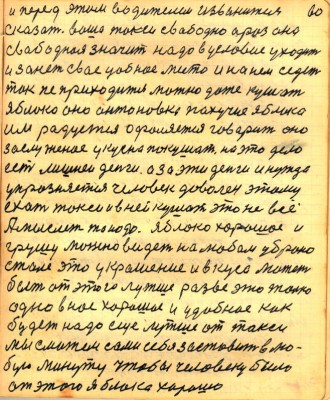 и перед этом водителем извенится во
сказат. ваша такси свободно а раз она
свободная значит надо в условие уходит
и занет свае удобное место и на нем седет
так не приходится можно даже кушат
яблоко оно антоновка пахучие яблока
им радуется одоляется говарит оно
заслуженое и кусна покушат, на это дело
ест лишней денги, а за эти денги и нужда
упрозняется человек доволен этому
ехат такси и в ней кушат это не всё
А мыслет тоюдо. Яблоко хорошое и
грушу можно видет на любом убрано
столе это украшение и вкуса может
быт от этого лутше разве это только
одно вное хорошое и удобное как
будет надо еще лутше от такси
мы сможем сами себя заставит в лю-
бую минуту чтобы человеку было
от этого яблока хорошо